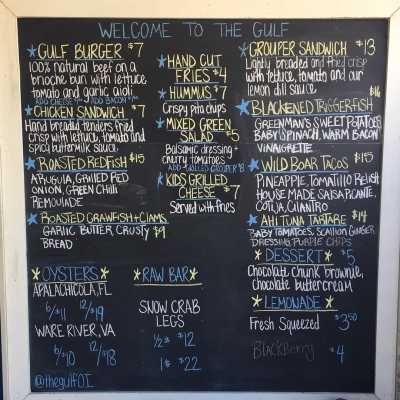 WELCOME TO THE GULF
GULF BURGER $7
100% natural beef on a
brioche bun with lettuce
tomato and garlic aioli
ADD CHEESE ADD BACON
CHICKEN SANDWICH $7
Hand breaded tenders fried
crisp with lettuce, tomato and
spicy buttermilk sauce
ROASTED REDFISH $15
ARUGULA, GRILLED RED
ONION, GREEN CHILI
REMOULADE
ROASTED CRAWFISH + CLAMS
GARLIC, BUTTER, CRUSTY $9
BREAD
HAND CUT
FRIES $4
HUMMUS $7
Crispy pita chips
MIXED GREEN
SALAD $5
Balsamic dressing +
cherry tomatoes
ADD GRILLED GROUPER $8
KIDS GRILLED
CHEESE $7
Served with fries
GROUPER SANDWICH $13
Lightly breaded and fried crisp
with lettuce, tomato and our
lemon dill sauce
BLACKENED TRIGGERFISH $16
GREENMAN'S SWEET POTATOES
BABY SPINACH, WARM BACON
VINAIGRETTE
WILD BOAR TACOS $15
PINEAPPLE, TOMATILLO RELISH
HOUSE MADE SALSA PICANTE,
COTIJA, CILANTRO
AHI TUNA TARTARE $14
BABY TOMATOES, SCALLION GINGER
DRESSING, PURPLE CHIPS
DESSERT $5
Chocolate chunk brownie,
chocolate buttercream
LEMONADE
Fresh Squeezed $3.50
BlackBerry $4
OYSTERS
APALACHICOLA, FL
6/$11 12/$19
WARE RIVER, VA
6/$10 12/$18
RAW BAR
SNOW CRAB
LEGS
1/2# $12
1# $22
@thegulfOI